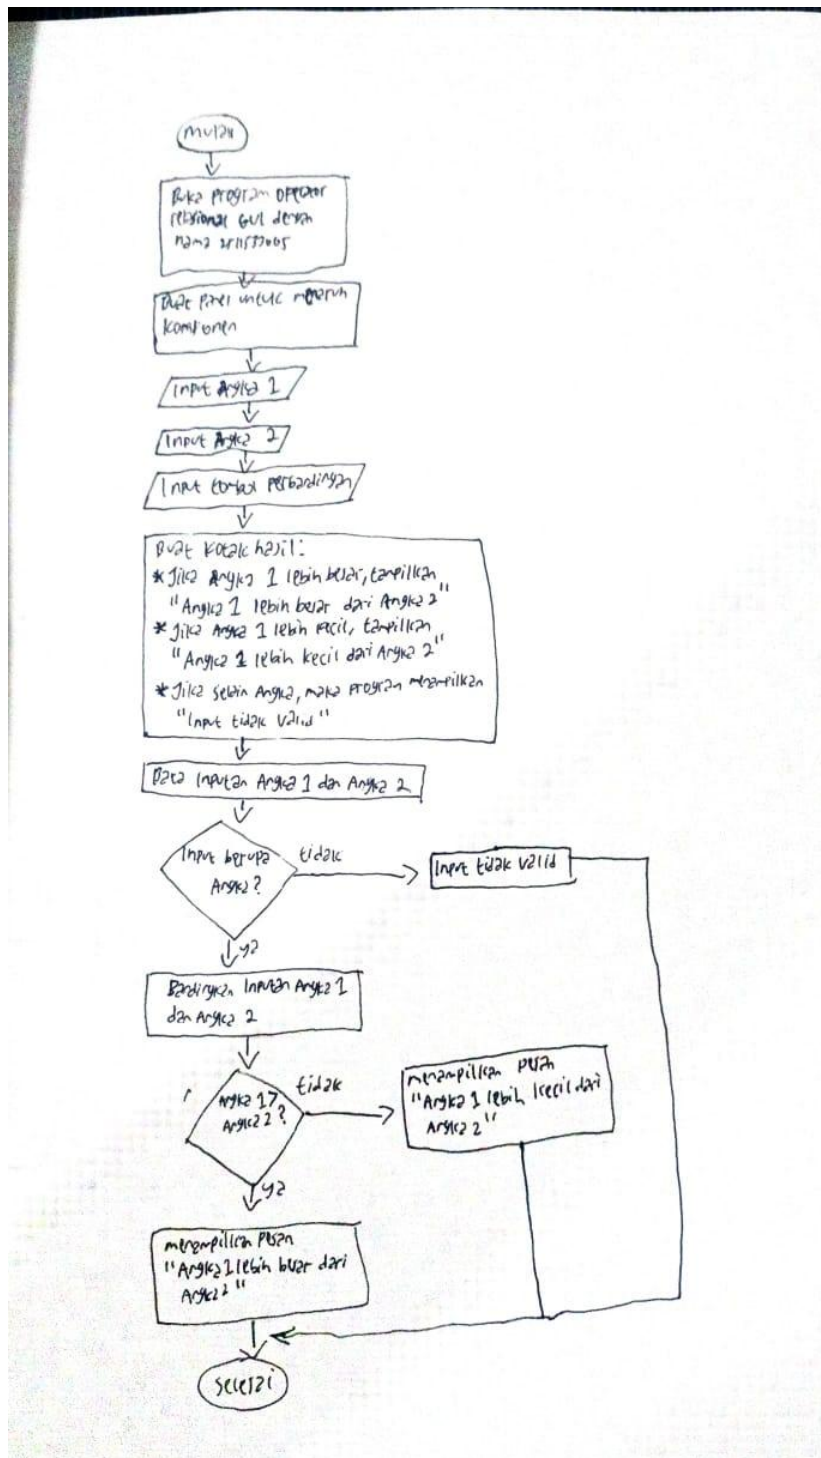 mulai
Buka program operator
relasional GUI dengan
nama
Buat panel untuk menaruh
komponen
Input Angka 1
Input Angka 2
Input tombol perbandingan
Buat kotak hasil:
* Jika Angka 1 lebih besar, tampilkan
"Angka 1 lebih besar dari Angka 2"
* Jika Angka 1 lebih kecil, tampilkan
"Angka 1 lebih kecil dari Angka 2"
* Jika selain Angka, maka program menampilkan
"Input tidak valid"
Baca Inputan Angka 1 dan Angka 2
Input berupa
Angka?
tidak
Input tidak valid
ya
Bandingkan Inputan Angka 1
dan Angka 2
Angka 1>
Angka 2?
tidak
menampilkan pesan
"Angka 1 lebih kecil dari
Angka 2"
ya
menampilkan pesan
"Angka 1 lebih besar dari
Angka 2"
selesai